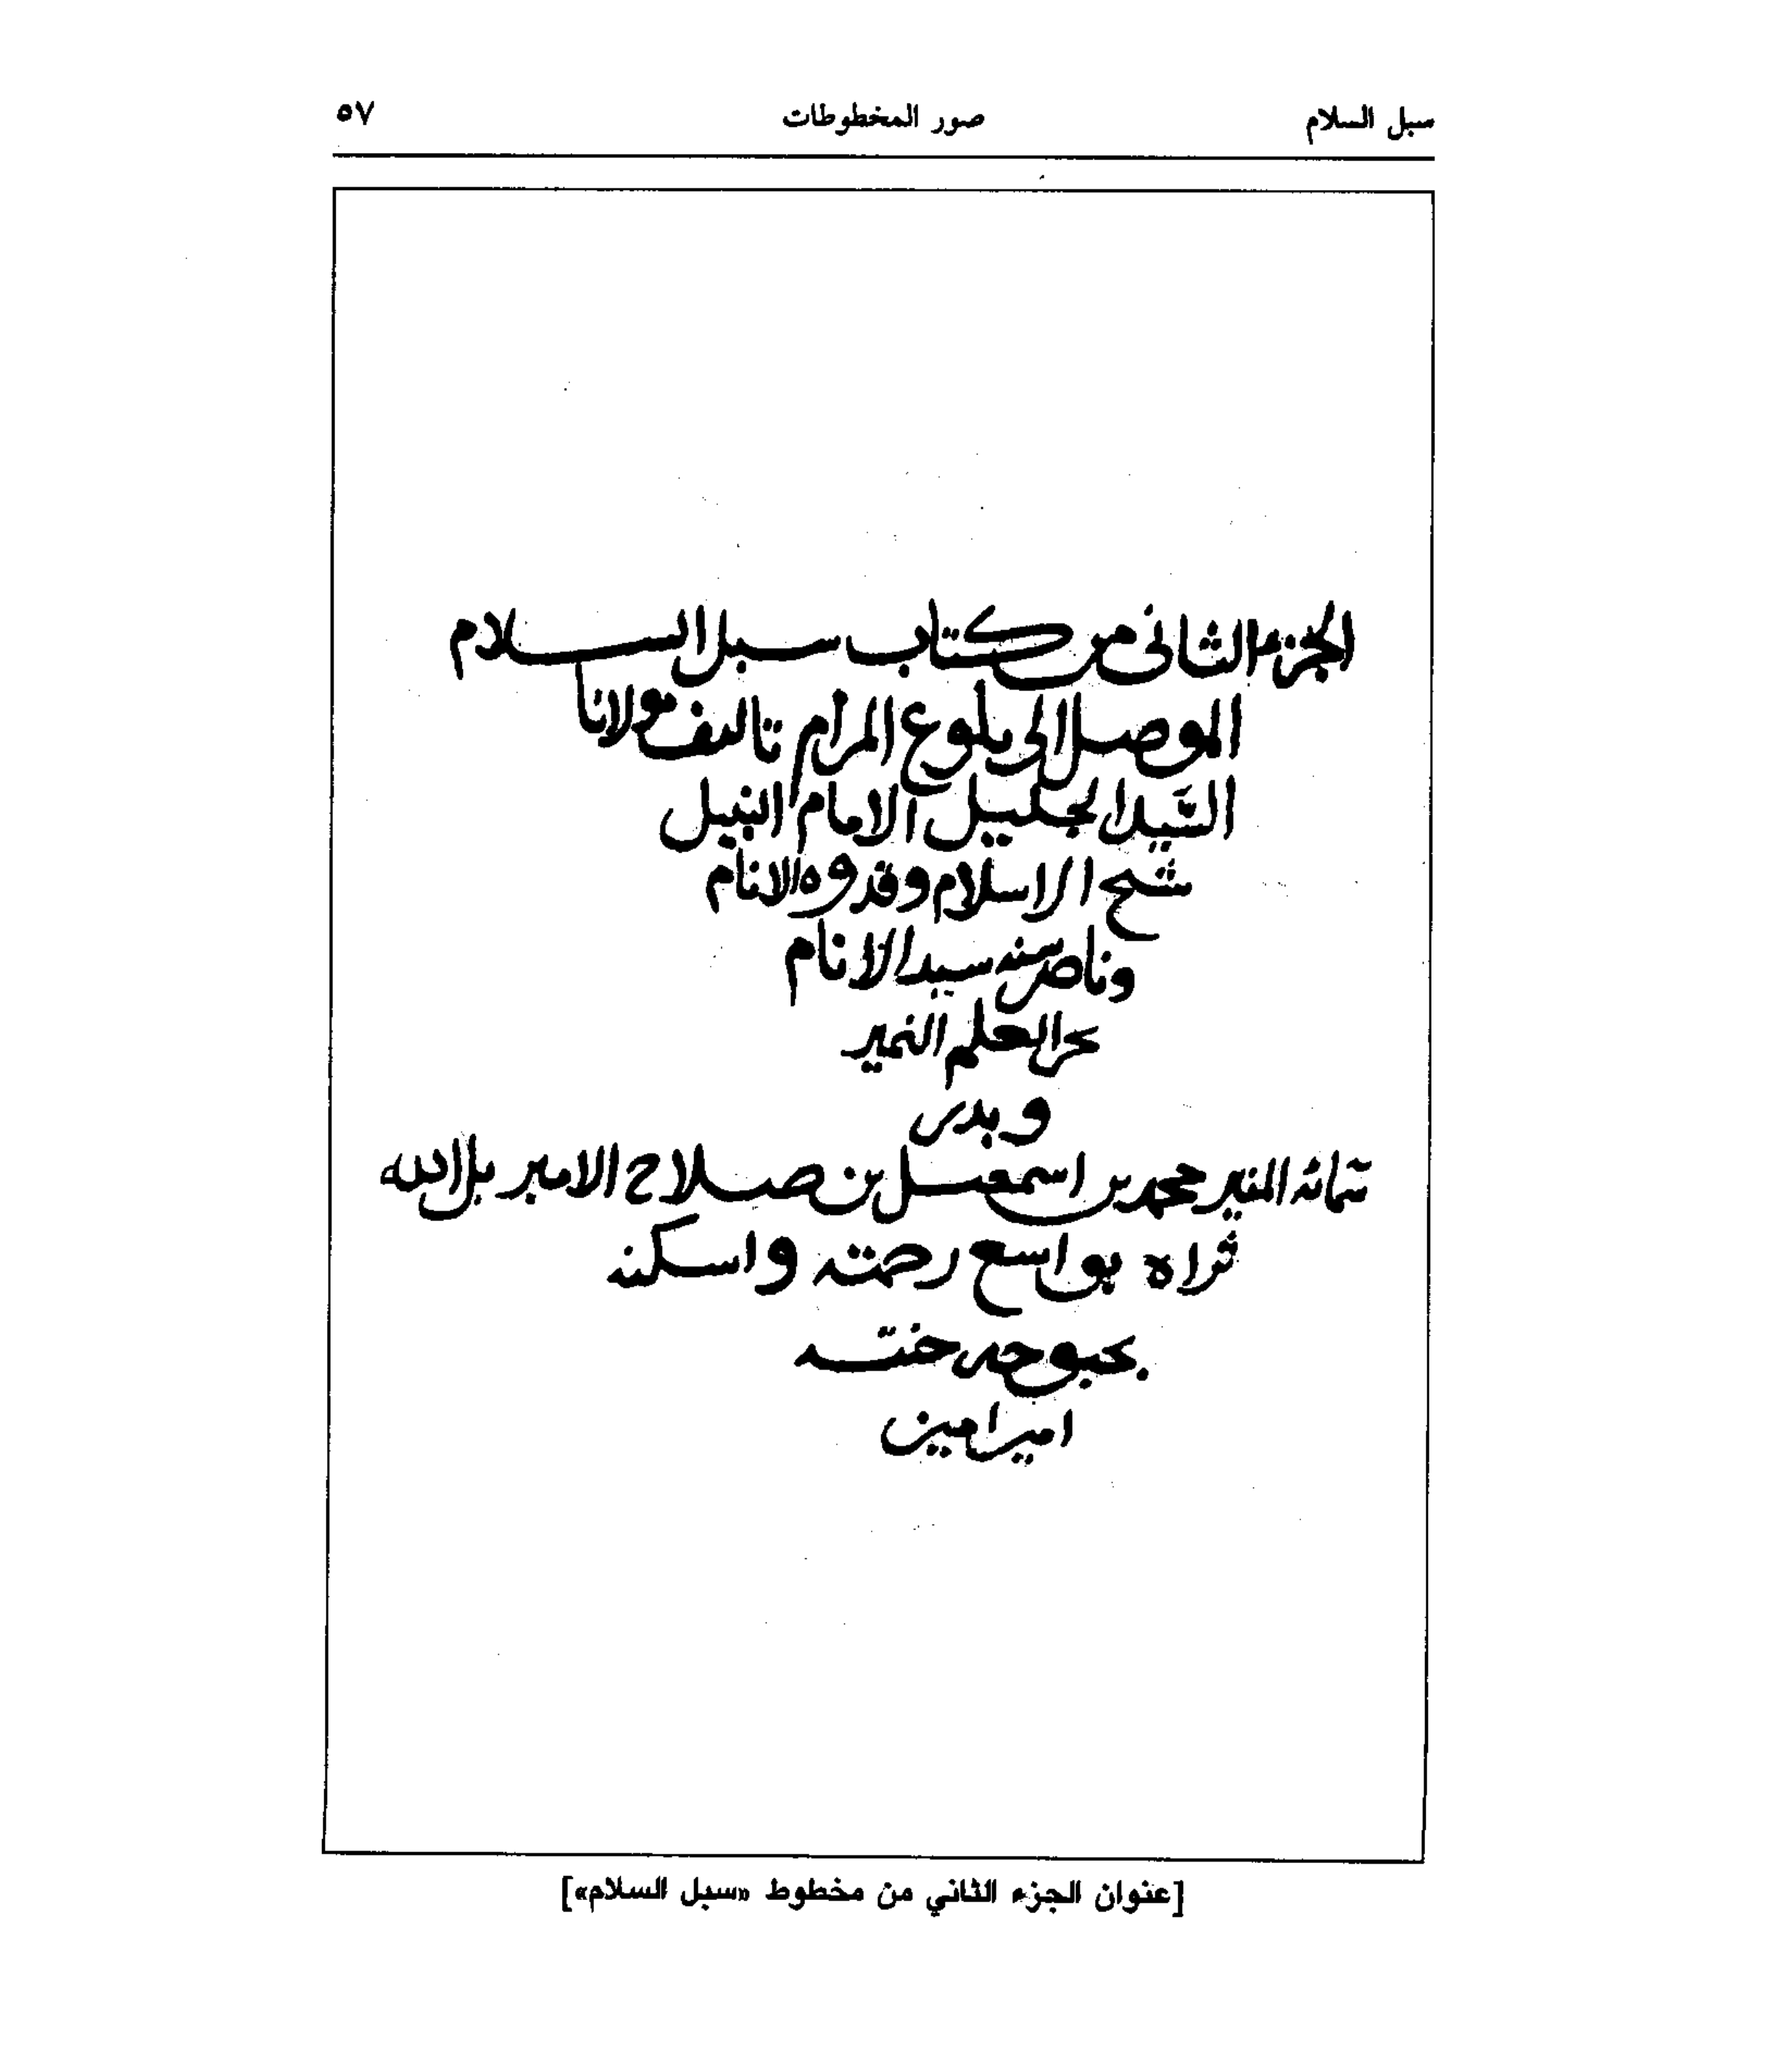 سبل السلام
صور المخطوطات
٥٧
الجزء الثانى من كتاب سبل السلام
الموصل الى بلوغ المرام تاليف مولانا
السيد الجليل الامام النبيل
شيخ الاسلام وقدوه الانام
وناصر سنه سيد الانام
بحر العلم النمير
وبدر
سمائه المنير محمد بن اسمعيل بن صلاح الامير بل الله
ثراه بواسع رحمته واسكنه
بحبوحه جنته
امين امين
[عنوان الجزء الثاني من مخطوط «سبل السلام»]